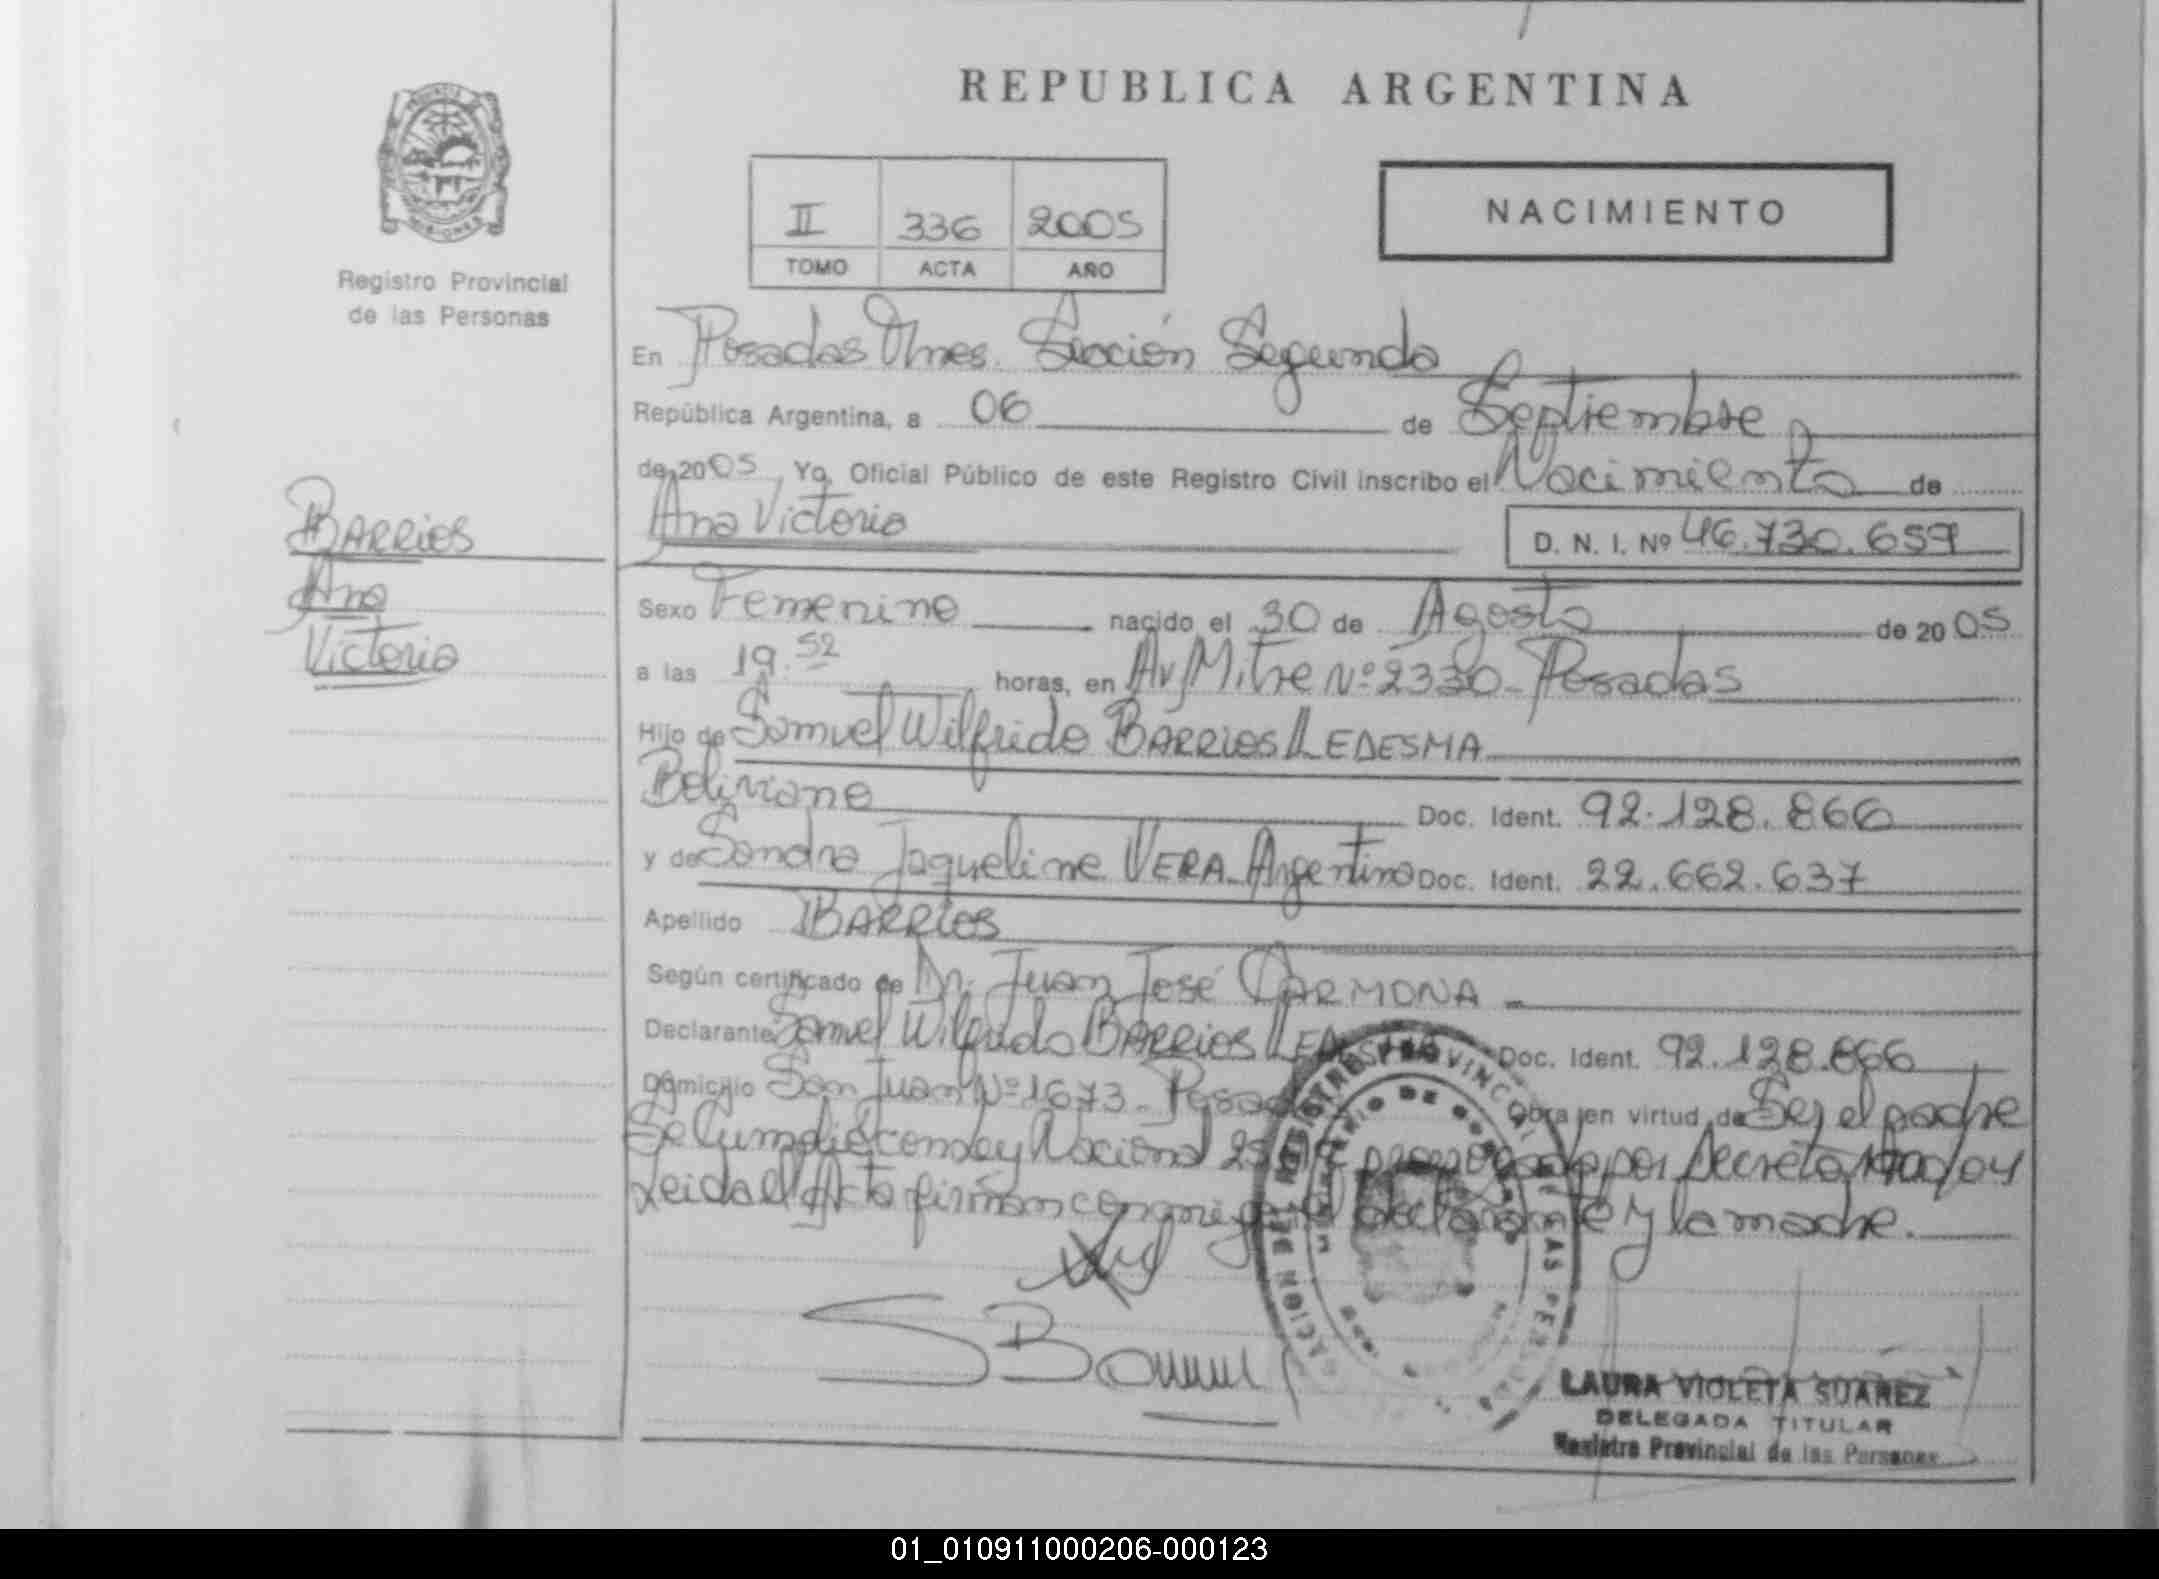 REPUBLICA ARGENTINA
Registro Provincial
de las Personas
II 336 2005
TOMO ACTA AÑO
NACIMIENTO
En Posadas Mnes. Sección Segunda
República Argentina, a 06 de Septiembre
de 2005 Yo, Oficial Público de este Registro Civil inscribo el Nacimiento de
Ana Victoria
D. N. I. Nº 46.730.659
BARRIOS
Ana
Victoria
Sexo Femenino nacido el 30 de Agosto de 2005
a las 19.52 horas, en Av Mitre Nº 2330 - Posadas
Hijo de Samuel Wilfrido BARRIOS LEDESMA
Boliviano Doc. Ident. 92.128.866
y de Sandra Jaqueline VERA - Argentina Doc. Ident. 22.662.637
Apellido BARRIOS
Según certificado de Dr. Juan José CARMONA
Declarante Samuel Wilfrido BARRIOS LEDESMA Doc. Ident. 92.128.866
Domicilio San Juan Nº 1673 - Posadas Obra en virtud de Ser el padre
Se Cumplió con Ley Nacional por Decreto
Leida el Acta firman conmigo el declarante y la madre.
S Barrios
REGISTRO PROVINCIAL DE LAS PERSONAS
LAURA VIOLETA SUAREZ
DELEGADA TITULAR
Registro Provincial de las Personas
01_010911000206-000123